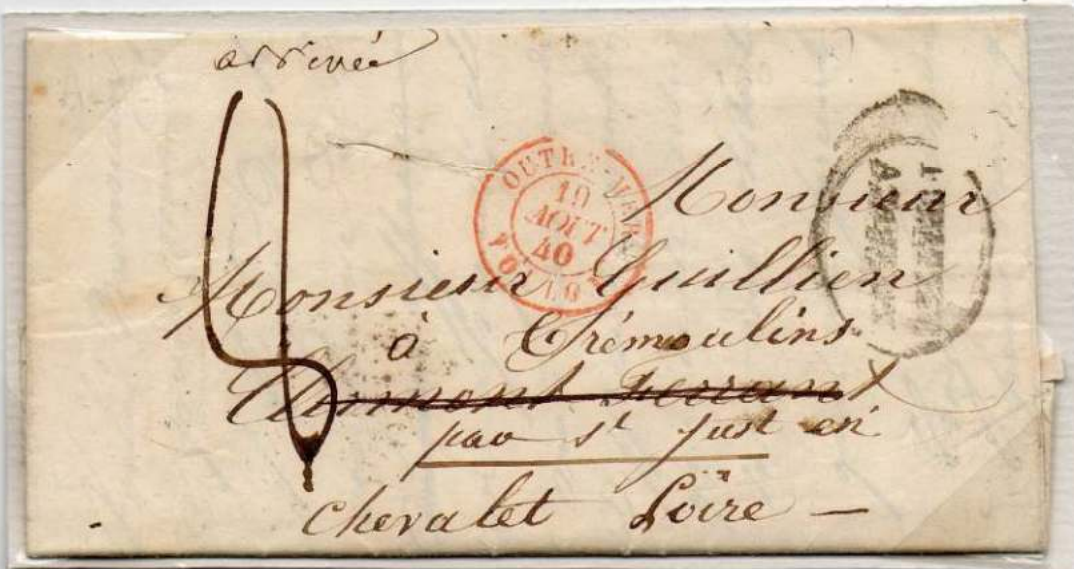 arrivée
OUTRE-MER
19
AOUT
40
TOULON
Monsieur
Monsieur Guillien
à Trémoulins
Clermont Ferrant
par St Just en
chevalet Loire —